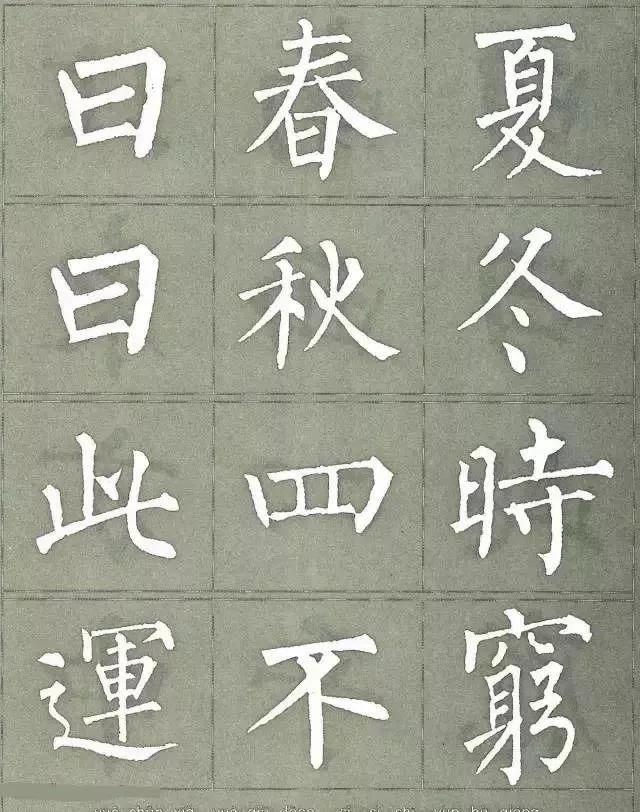 曰春夏
曰秋冬
此四時
運不窮